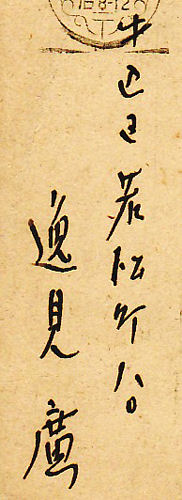 8-12
牛込区若松町八〇
逸見廣